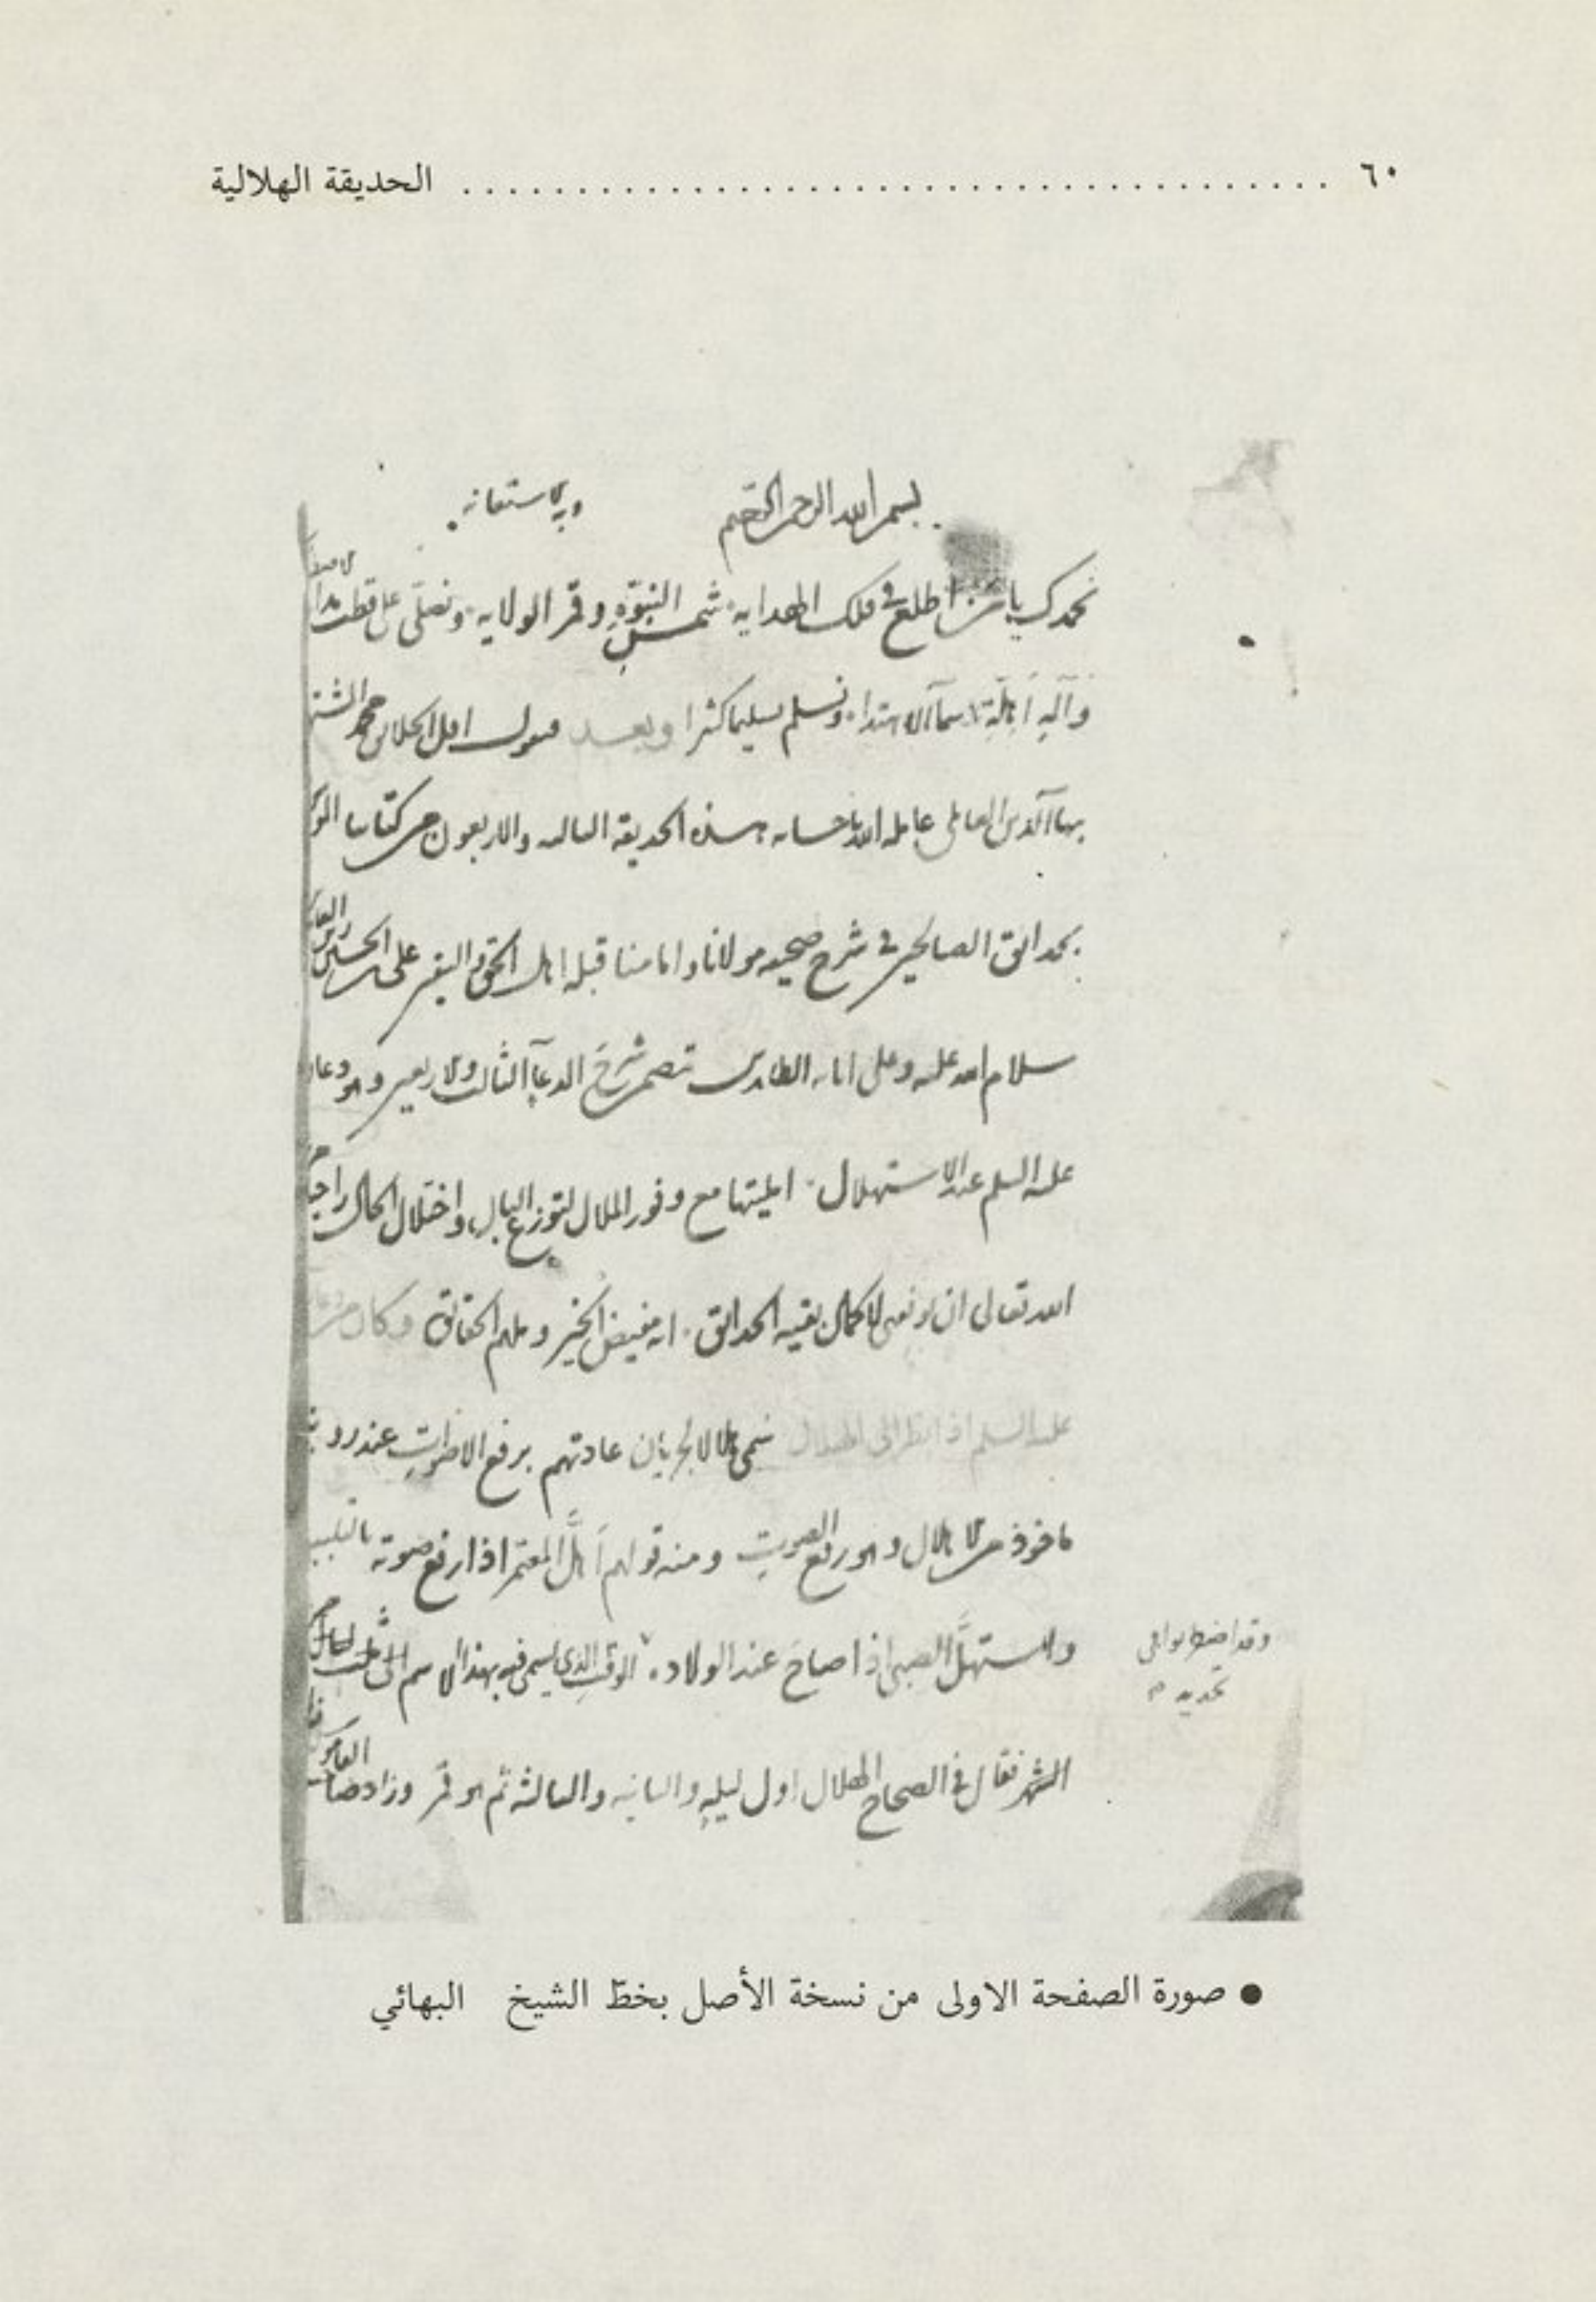 ٦٠ ........................................ الحديقة الهلالية
بسم الله الرحمن الرحيم وبه الاستعانة
نحمدك يا من اطلع في فلك الهداية شمس النبوة وقمر الولاية ونصلي على قطب
وآله أهلة سماء الاهتداء ونسلم تسليما كثيرا وبعد فيقول اقل الخلائق محمد المشتهر
بهاء الدين العاملي عامله الله باحسانه هذه الحديقة الثالثة والاربعون من كتابنا
بحدائق الصالحين في شرح صحيفة مولانا وامامنا قبلة اهل الحق واليقين علي بن الحسين زين
سلام الله عليه وعلى ابائه الطاهرين تتضمن شرح الدعاء الثالث والاربعين وهو دعاؤه
عليه السلم عند الاستهلال امليتها مع وفور الملال لتوزع البال واختلال الحال راجيا من
الله تعالى ان يوفقني لاكمال بقية الحدائق انه مفيض الخير وملهم الحقائق وكان من
عليه السلم اذا نظر الى الهلال سمي هلالا لجريان عادتهم برفع الاصوات عند
ماخوذ من الاهلال وهو رفع الصوت ومنه قولهم أهل المعتمر اذا رفع صوته بالتلبية
واستهل الصبي اذا صاح عند الولادة الوقت الذي يسمى فيه بهذا الاسم
وقد اضطربوا في
تحديد
الشهر فقال في الصحاح الهلال اول ليلة والثانية والثالثة ثم هو قمر وزاد صاحب القاموس
● صورة الصفحة الاولى من نسخة الأصل بخطّ الشيخ البهائي